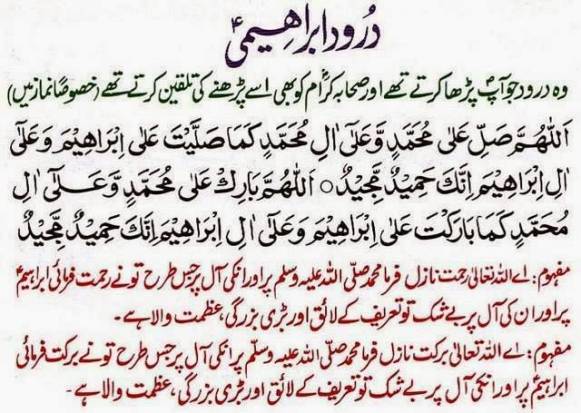 درود ابراھیمیؑ
وہ درود جو آپؐ پڑھا کرتے تھے اور صحابہ کرامؓ کو بھی اسے پڑھنے کی تلقین کرتے تھے (خصوصاً نماز میں)
اَللّٰهُمَّ صَلِّ عَلٰى مُحَمَّدٍ وَّعَلٰٓى اٰلِ مُحَمَّدٍ كَمَا صَلَّيْتَ عَلٰٓى اِبْرَاهِيْمَ وَعَلٰٓى
اٰلِ اِبْرَاهِيْمَ اِنَّكَ حَمِيْدٌ مَّجِيْدٌ ○ اَللّٰهُمَّ بَارِكْ عَلٰى مُحَمَّدٍ وَّعَلٰٓى اٰلِ
مُحَمَّدٍ كَمَا بَارَكْتَ عَلٰٓى اِبْرَاهِيْمَ وَعَلٰٓى اٰلِ اِبْرَاهِيْمَ اِنَّكَ حَمِيْدٌ مَّجِيْدٌ
مفہوم: اے اللہ تعالیٰ رحمت نازل فرما محمد صلی اللہ علیہ وسلم پر اور انکی آل پر جس طرح تو نے رحمت فرمائی ابراہیمؑ
پر اور ان کی آل پر بے شک تو تعریف کے لائق اور بڑی بزرگی، عظمت والا ہے۔
مفہوم: اے اللہ تعالیٰ برکت نازل فرما محمد صلی اللہ علیہ وسلم پر انکی آل پر جس طرح تو نے برکت فرمائی
ابراہیمؑ پر اور انکی آل پر بے شک تو تعریف کے لائق اور بڑی بزرگی، عظمت والا ہے۔